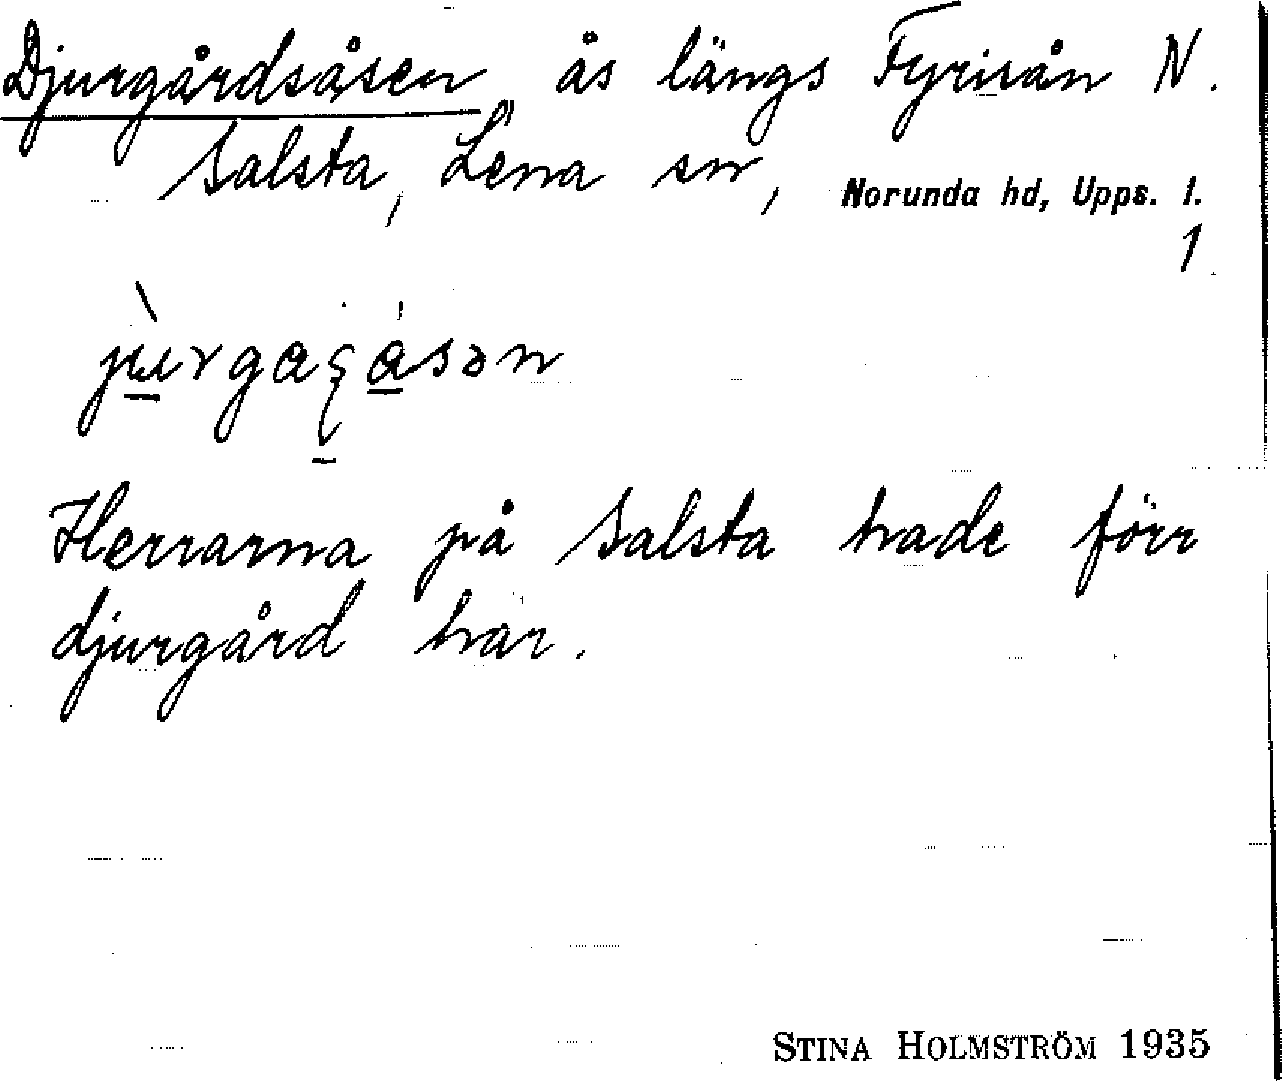 Djurgårdsåsen ås längs Fyrisån N.
Salsta, Lena sn, Norunda hd, Upps. l.
1
Herrarna på Salsta hade förr
djurgård här.
STINA HOLMSTRÖM 1935